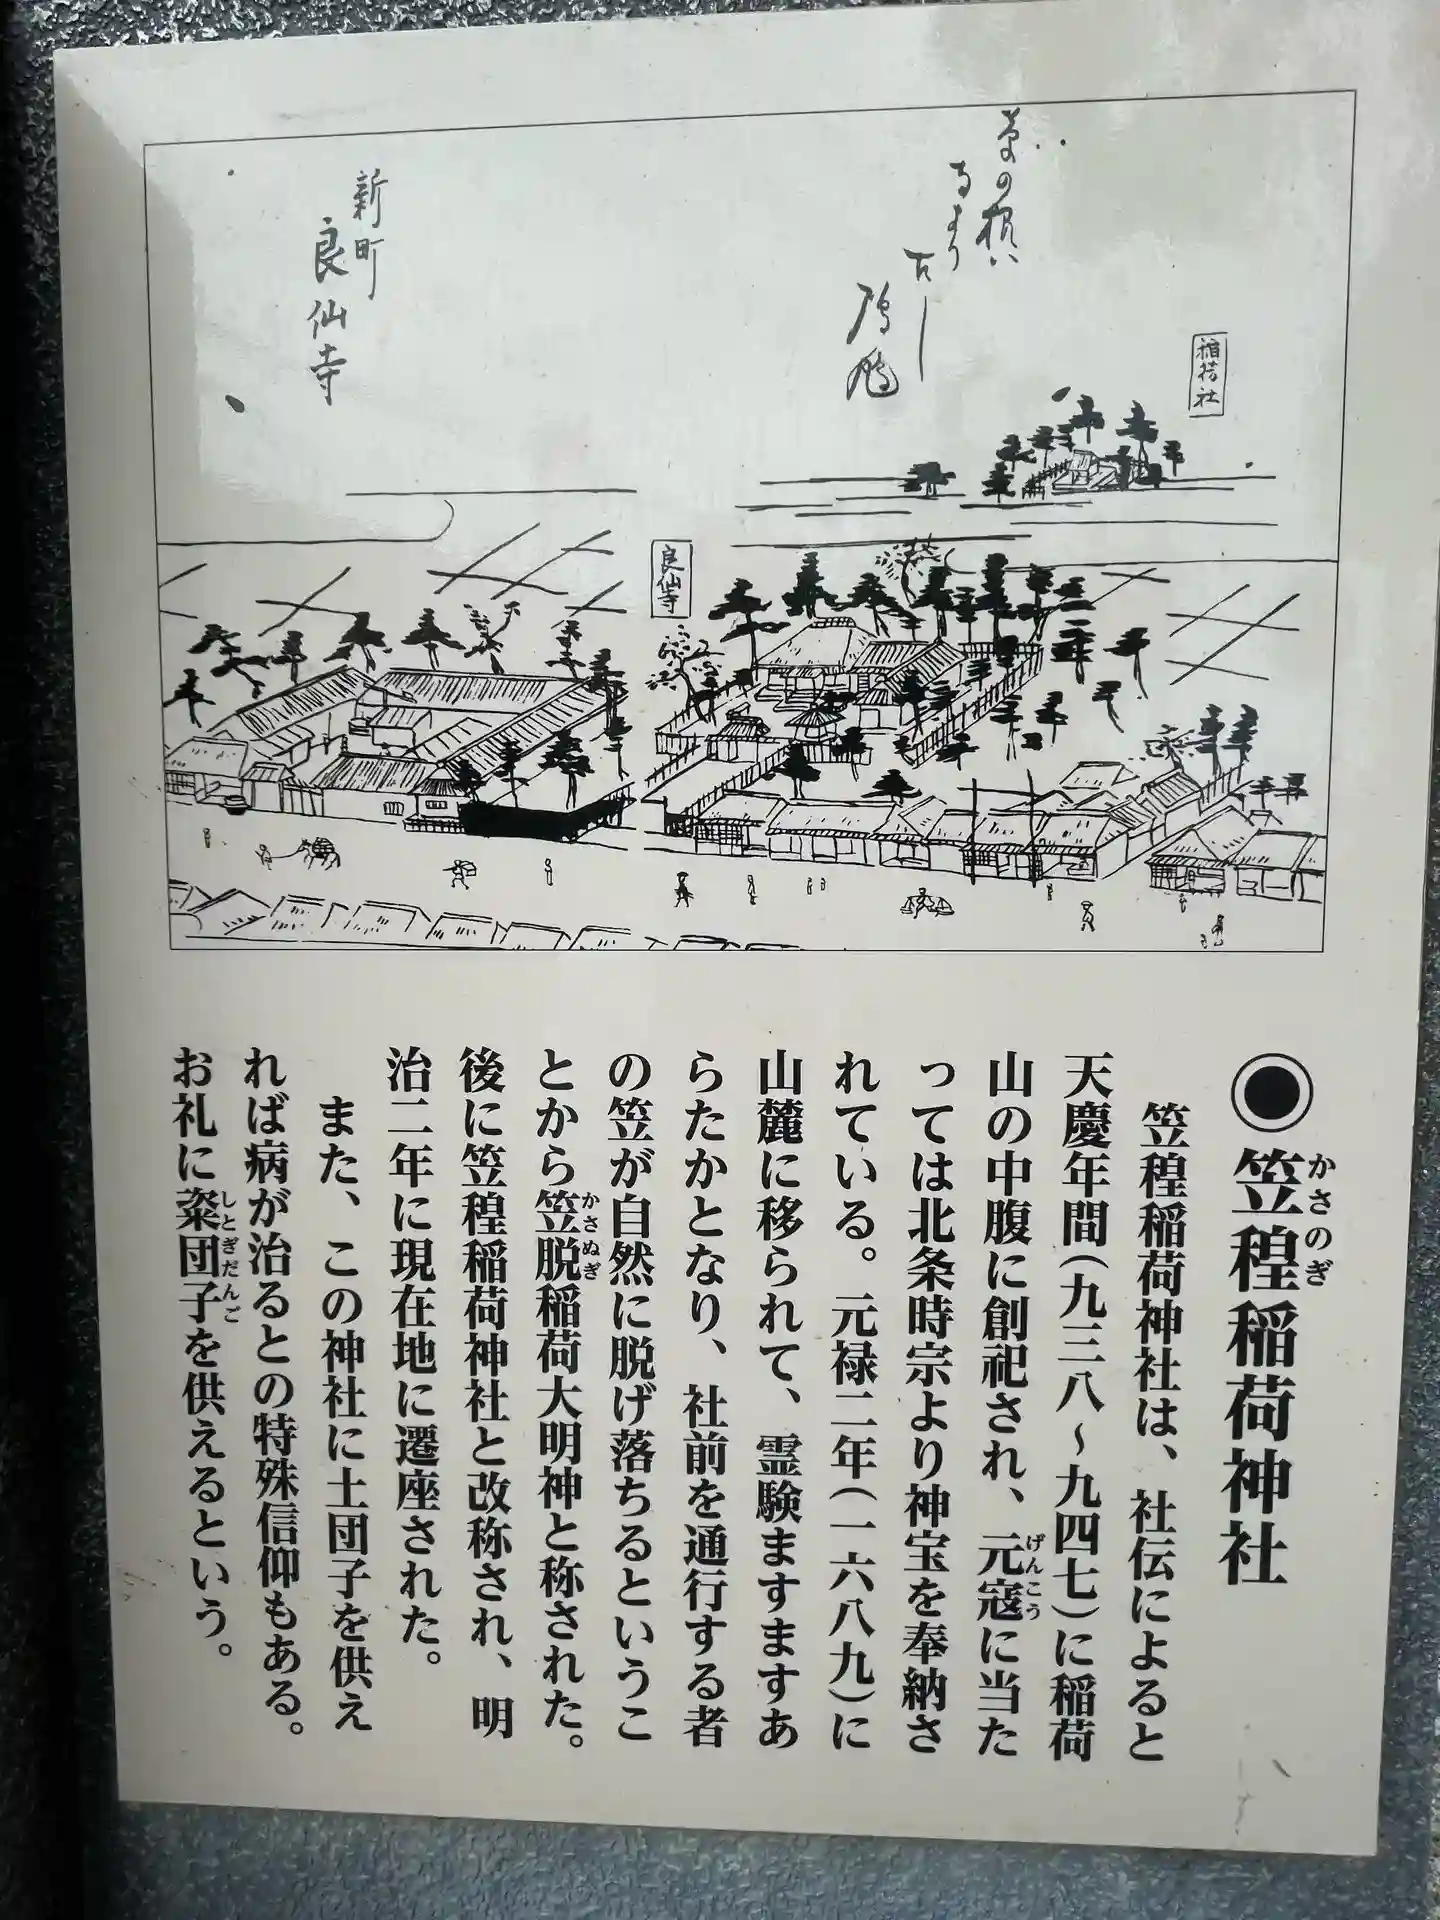 新町
良仙寺
稲荷社
良仙寺
古し
◉笠䅣稲荷神社
かさのぎ
笠䅣稲荷神社は、社伝によると
天慶年間(九三八～九四七)に稲荷
山の中腹に創祀され、元寇に当た
げんこう
っては北条時宗より神宝を奉納さ
れている。元禄二年(一六八九)に
山麓に移られて、霊験ますますあ
らたかとなり、社前を通行する者
の笠が自然に脱げ落ちるというこ
とから笠脱稲荷大明神と称された。
かさぬぎ
後に笠䅣稲荷神社と改称され、明
治二年に現在地に遷座された。
また、この神社に土団子を供え
れば病が治るとの特殊信仰もある。
お礼に粢団子を供えるという。
しとぎだんご